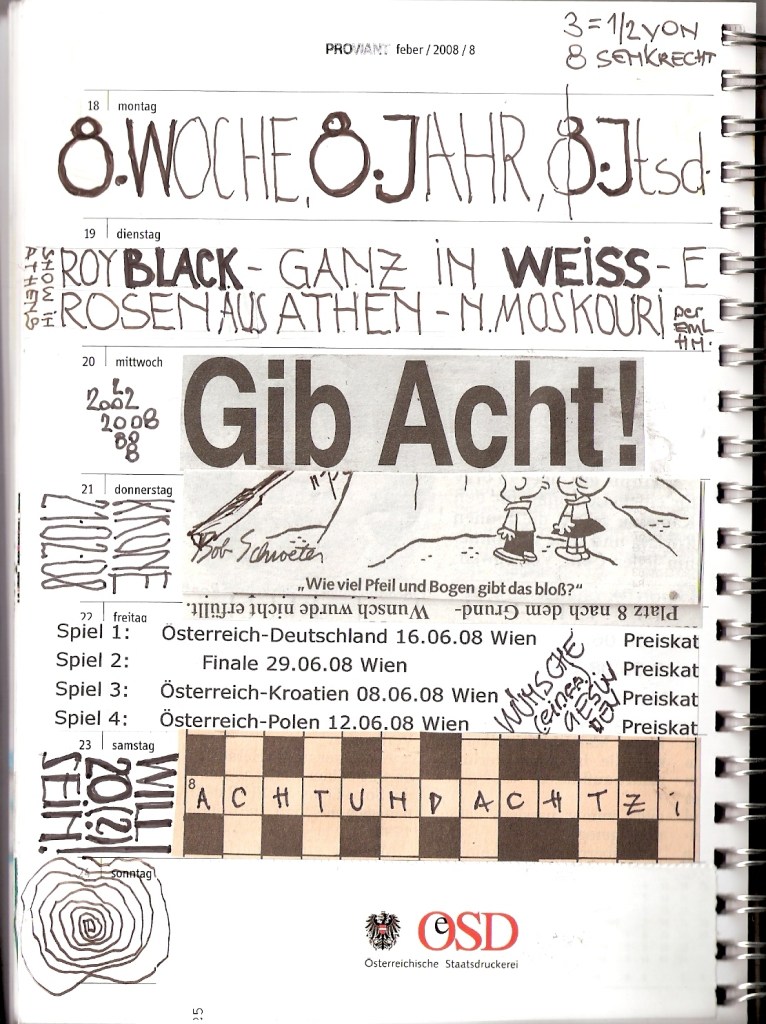 3 = 1/2 VON
8 SENKRECHT
PROVIANT feber / 2008 / 8
18 montag
8. WOCHE, 8. JAHR, 8. Jtsd.
19 dienstag
SHOW IN
ATHEN?
ROY BLACK - GANZ IN WEISS - E
ROSEN AUS ATHEN - N. MOSKOURI
20 mittwoch
2002
2008
88
8
Gib Acht!
21 donnerstag
KRONE
21.02.08
Bob Schroeter
„Wie viel Pfeil und Bogen gibt das bloß?"
Platz 8 nach dem Grund- Wunsch wurde nicht erfüllt.
22 freitag
Spiel 1: Österreich-Deutschland 16.06.08 Wien Preiskat
Spiel 2: Finale 29.06.08 Wien Preiskat
Spiel 3: Österreich-Kroatien 08.06.08 Wien Preiskat
Spiel 4: Österreich-Polen 12.06.08 Wien Preiskat
WÜNSCHE
(einen)
GESUN
DEN
23 samstag
WILL
20(?)
SEIN.
8 ACHTUNDACHTZI
24 sonntag
OeSD
Österreichische Staatsdruckerei